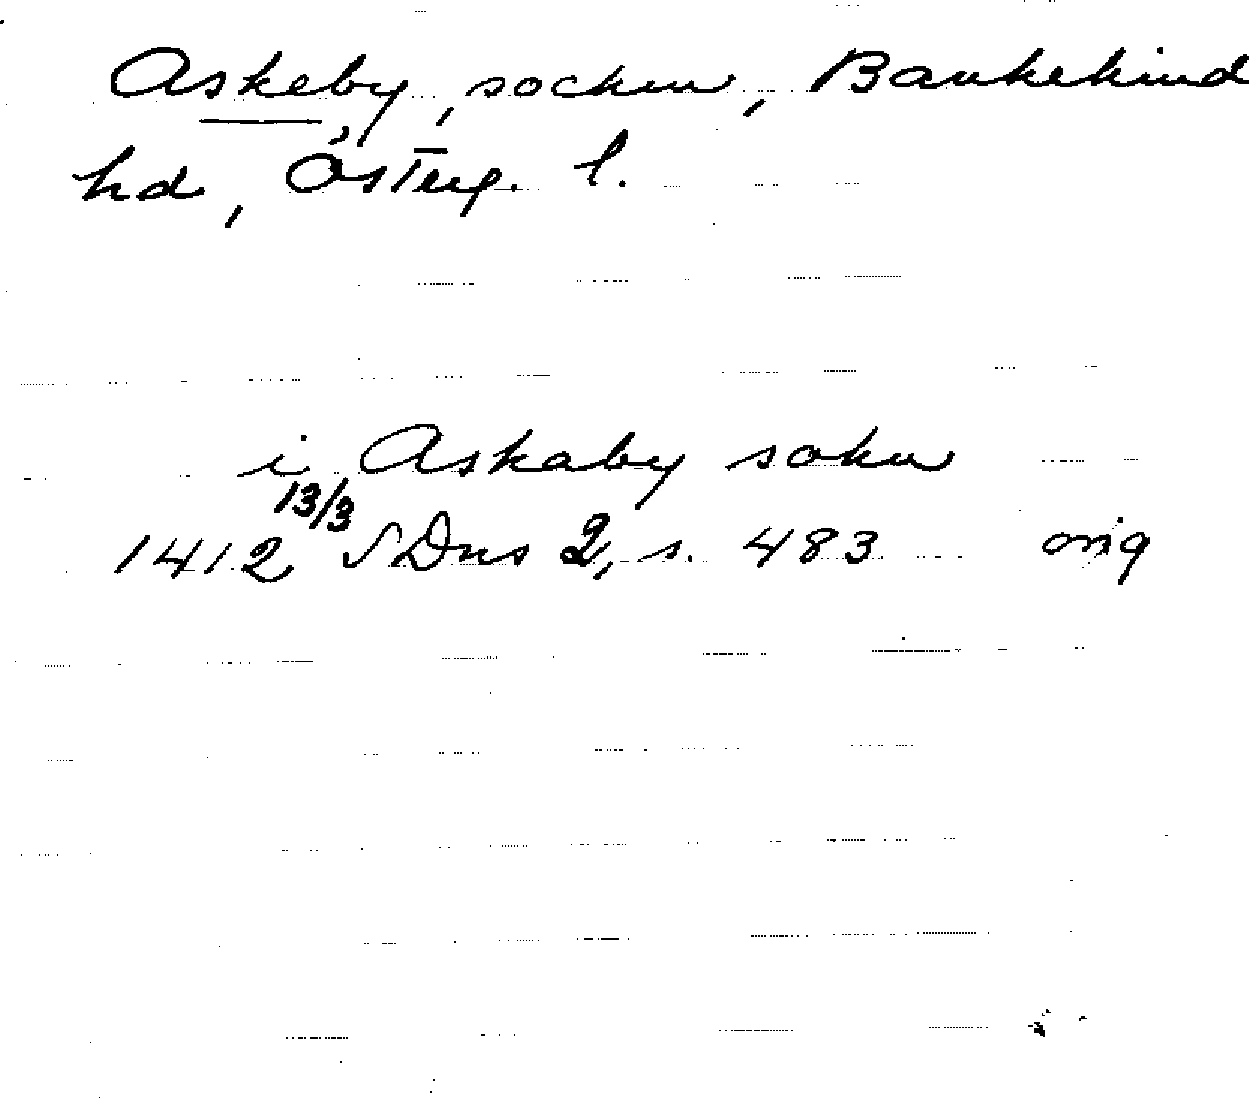 Askeby, socken, Bankekind
hd, Österg. l.
i Askaby sokn
1412 13/3 SDns 2, s. 483 orig